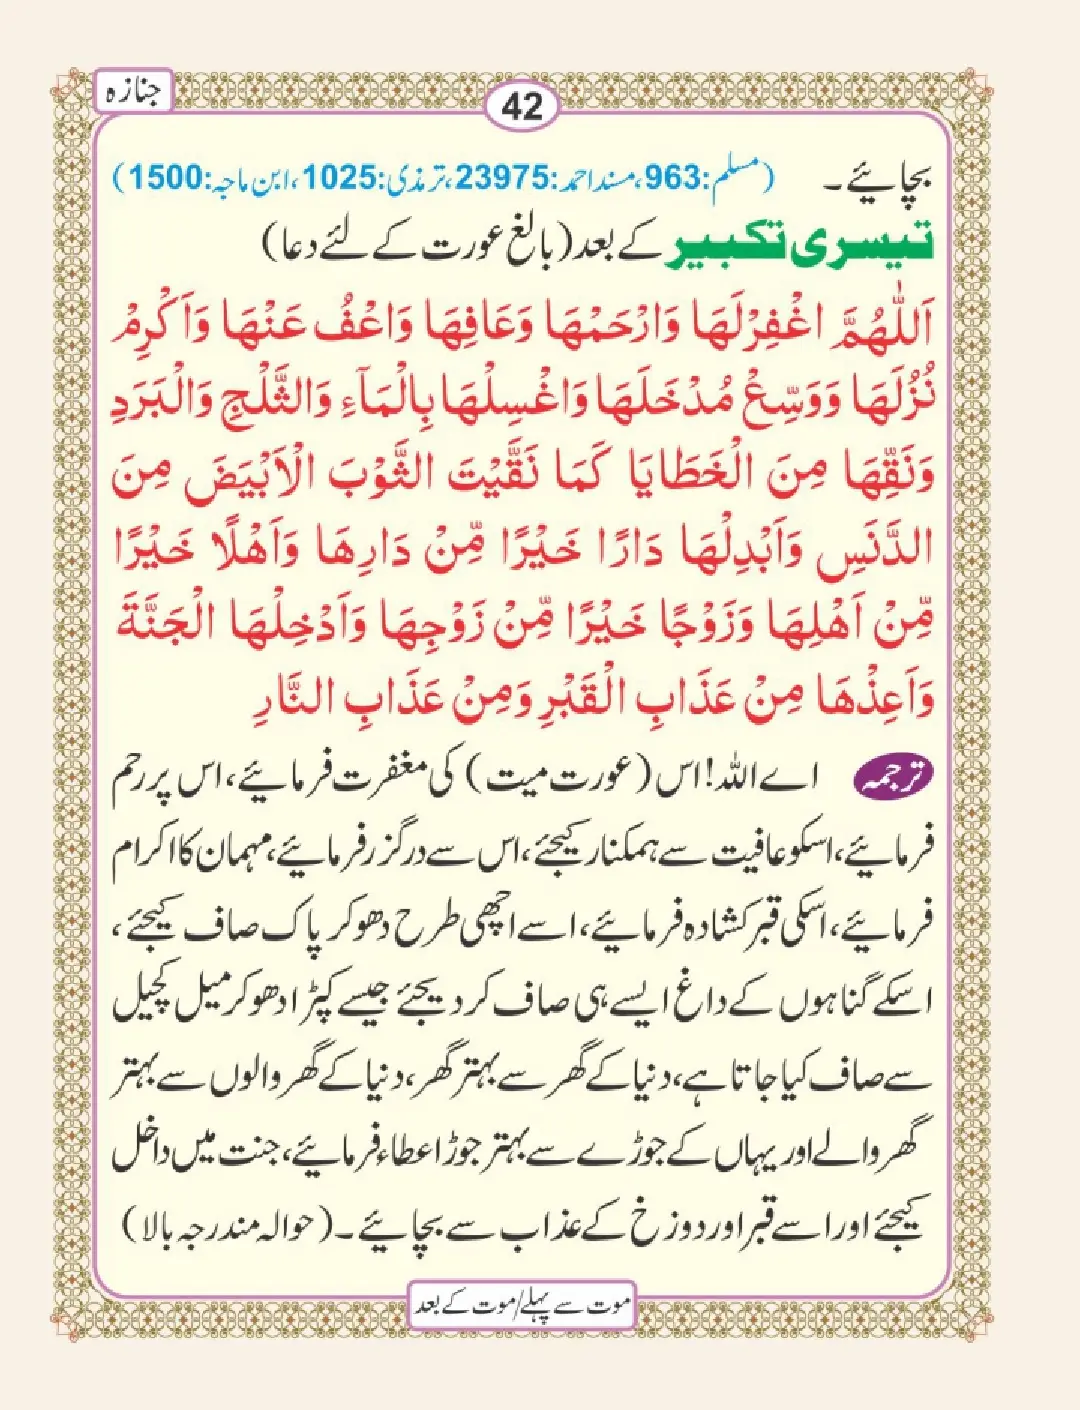 جنازہ
42
بچائیے۔ (مسلم:963، مسند احمد:23975، ترمذی:1025، ابن ماجہ:1500)
تیسری تکبیر کے بعد (بالغ عورت کے لئے دعا)
اَللّٰهُمَّ اغْفِرْلَهَا وَارْحَمْهَا وَعَافِهَا وَاعْفُ عَنْهَا وَاَكْرِمْ
نُزُلَهَا وَوَسِّعْ مُدْخَلَهَا وَاغْسِلْهَا بِالْمَآءِ وَالثَّلْجِ وَالْبَرَدِ
وَنَقِّهَا مِنَ الْخَطَايَا كَمَا نَقَّيْتَ الثَّوْبَ الْاَبْيَضَ مِنَ
الدَّنَسِ وَاَبْدِلْهَا دَارًا خَيْرًا مِّنْ دَارِهَا وَاَهْلًا خَيْرًا
مِّنْ اَهْلِهَا وَزَوْجًا خَيْرًا مِّنْ زَوْجِهَا وَاَدْخِلْهَا الْجَنَّةَ
وَاَعِذْهَا مِنْ عَذَابِ الْقَبْرِ وَمِنْ عَذَابِ النَّارِ
ترجمہ اے اللہ! اس (عورت میت) کی مغفرت فرمائیے، اس پر رحم
فرمائیے، اسکو عافیت سے ہمکنار کیجئے، اس سے درگزر فرمائیے، مہمان کا اکرام
فرمائیے، اسکی قبر کشادہ فرمائیے، اسے اچھی طرح دھو کر پاک صاف کیجئے،
اسکے گناہوں کے داغ ایسے ہی صاف کر دیجئے جیسے کپڑا دھو کر میل کچیل
سے صاف کیا جاتا ہے، دنیا کے گھر سے بہتر گھر، دنیا کے گھر والوں سے بہتر
گھر والے اور یہاں کے جوڑے سے بہتر جوڑا عطاء فرمائیے، جنت میں داخل
کیجئے اور اسے قبر اور دوزخ کے عذاب سے بچائیے۔ (حوالہ مندرجہ بالا)
موت سے پہلے/موت کے بعد